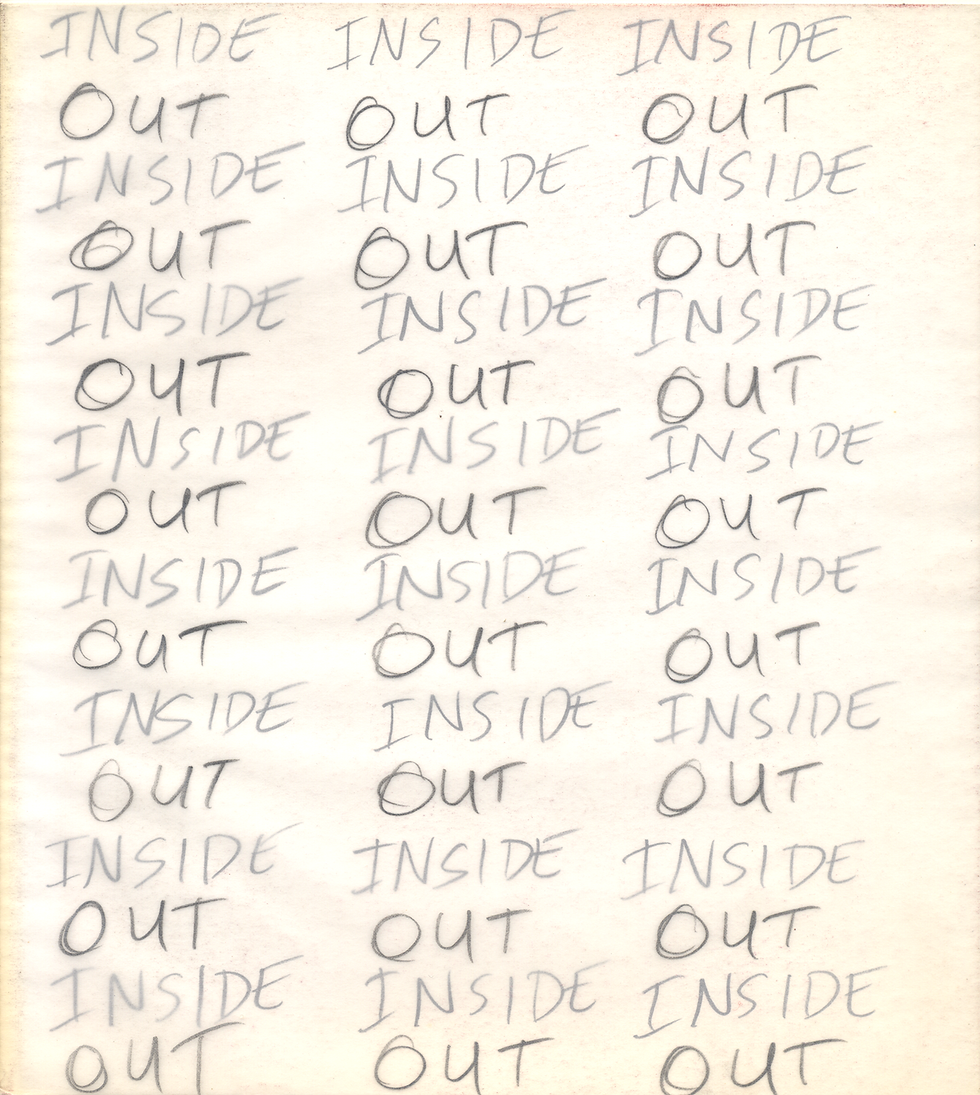 INSIDE INSIDE INSIDE
OUT OUT OUT
INSIDE INSIDE INSIDE
OUT OUT OUT
INSIDE INSIDE INSIDE
OUT OUT OUT
INSIDE INSIDE INSIDE
OUT OUT OUT
INSIDE INSIDE INSIDE
OUT OUT OUT
INSIDE INSIDE INSIDE
OUT OUT OUT
INSIDE INSIDE INSIDE
OUT OUT OUT
INSIDE INSIDE INSIDE
OUT OUT OUT